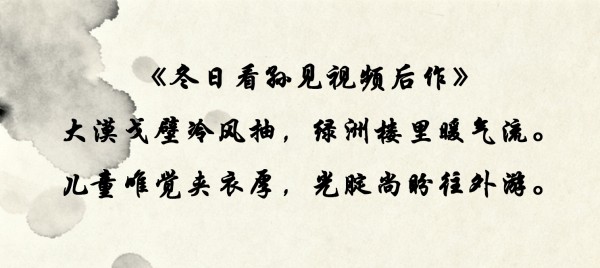 《冬日看孙见视频后作》
大漠戈壁冷风抽，绿洲楼里暖气流。
儿童唯觉夹衣厚，光腚尚盼往外游。